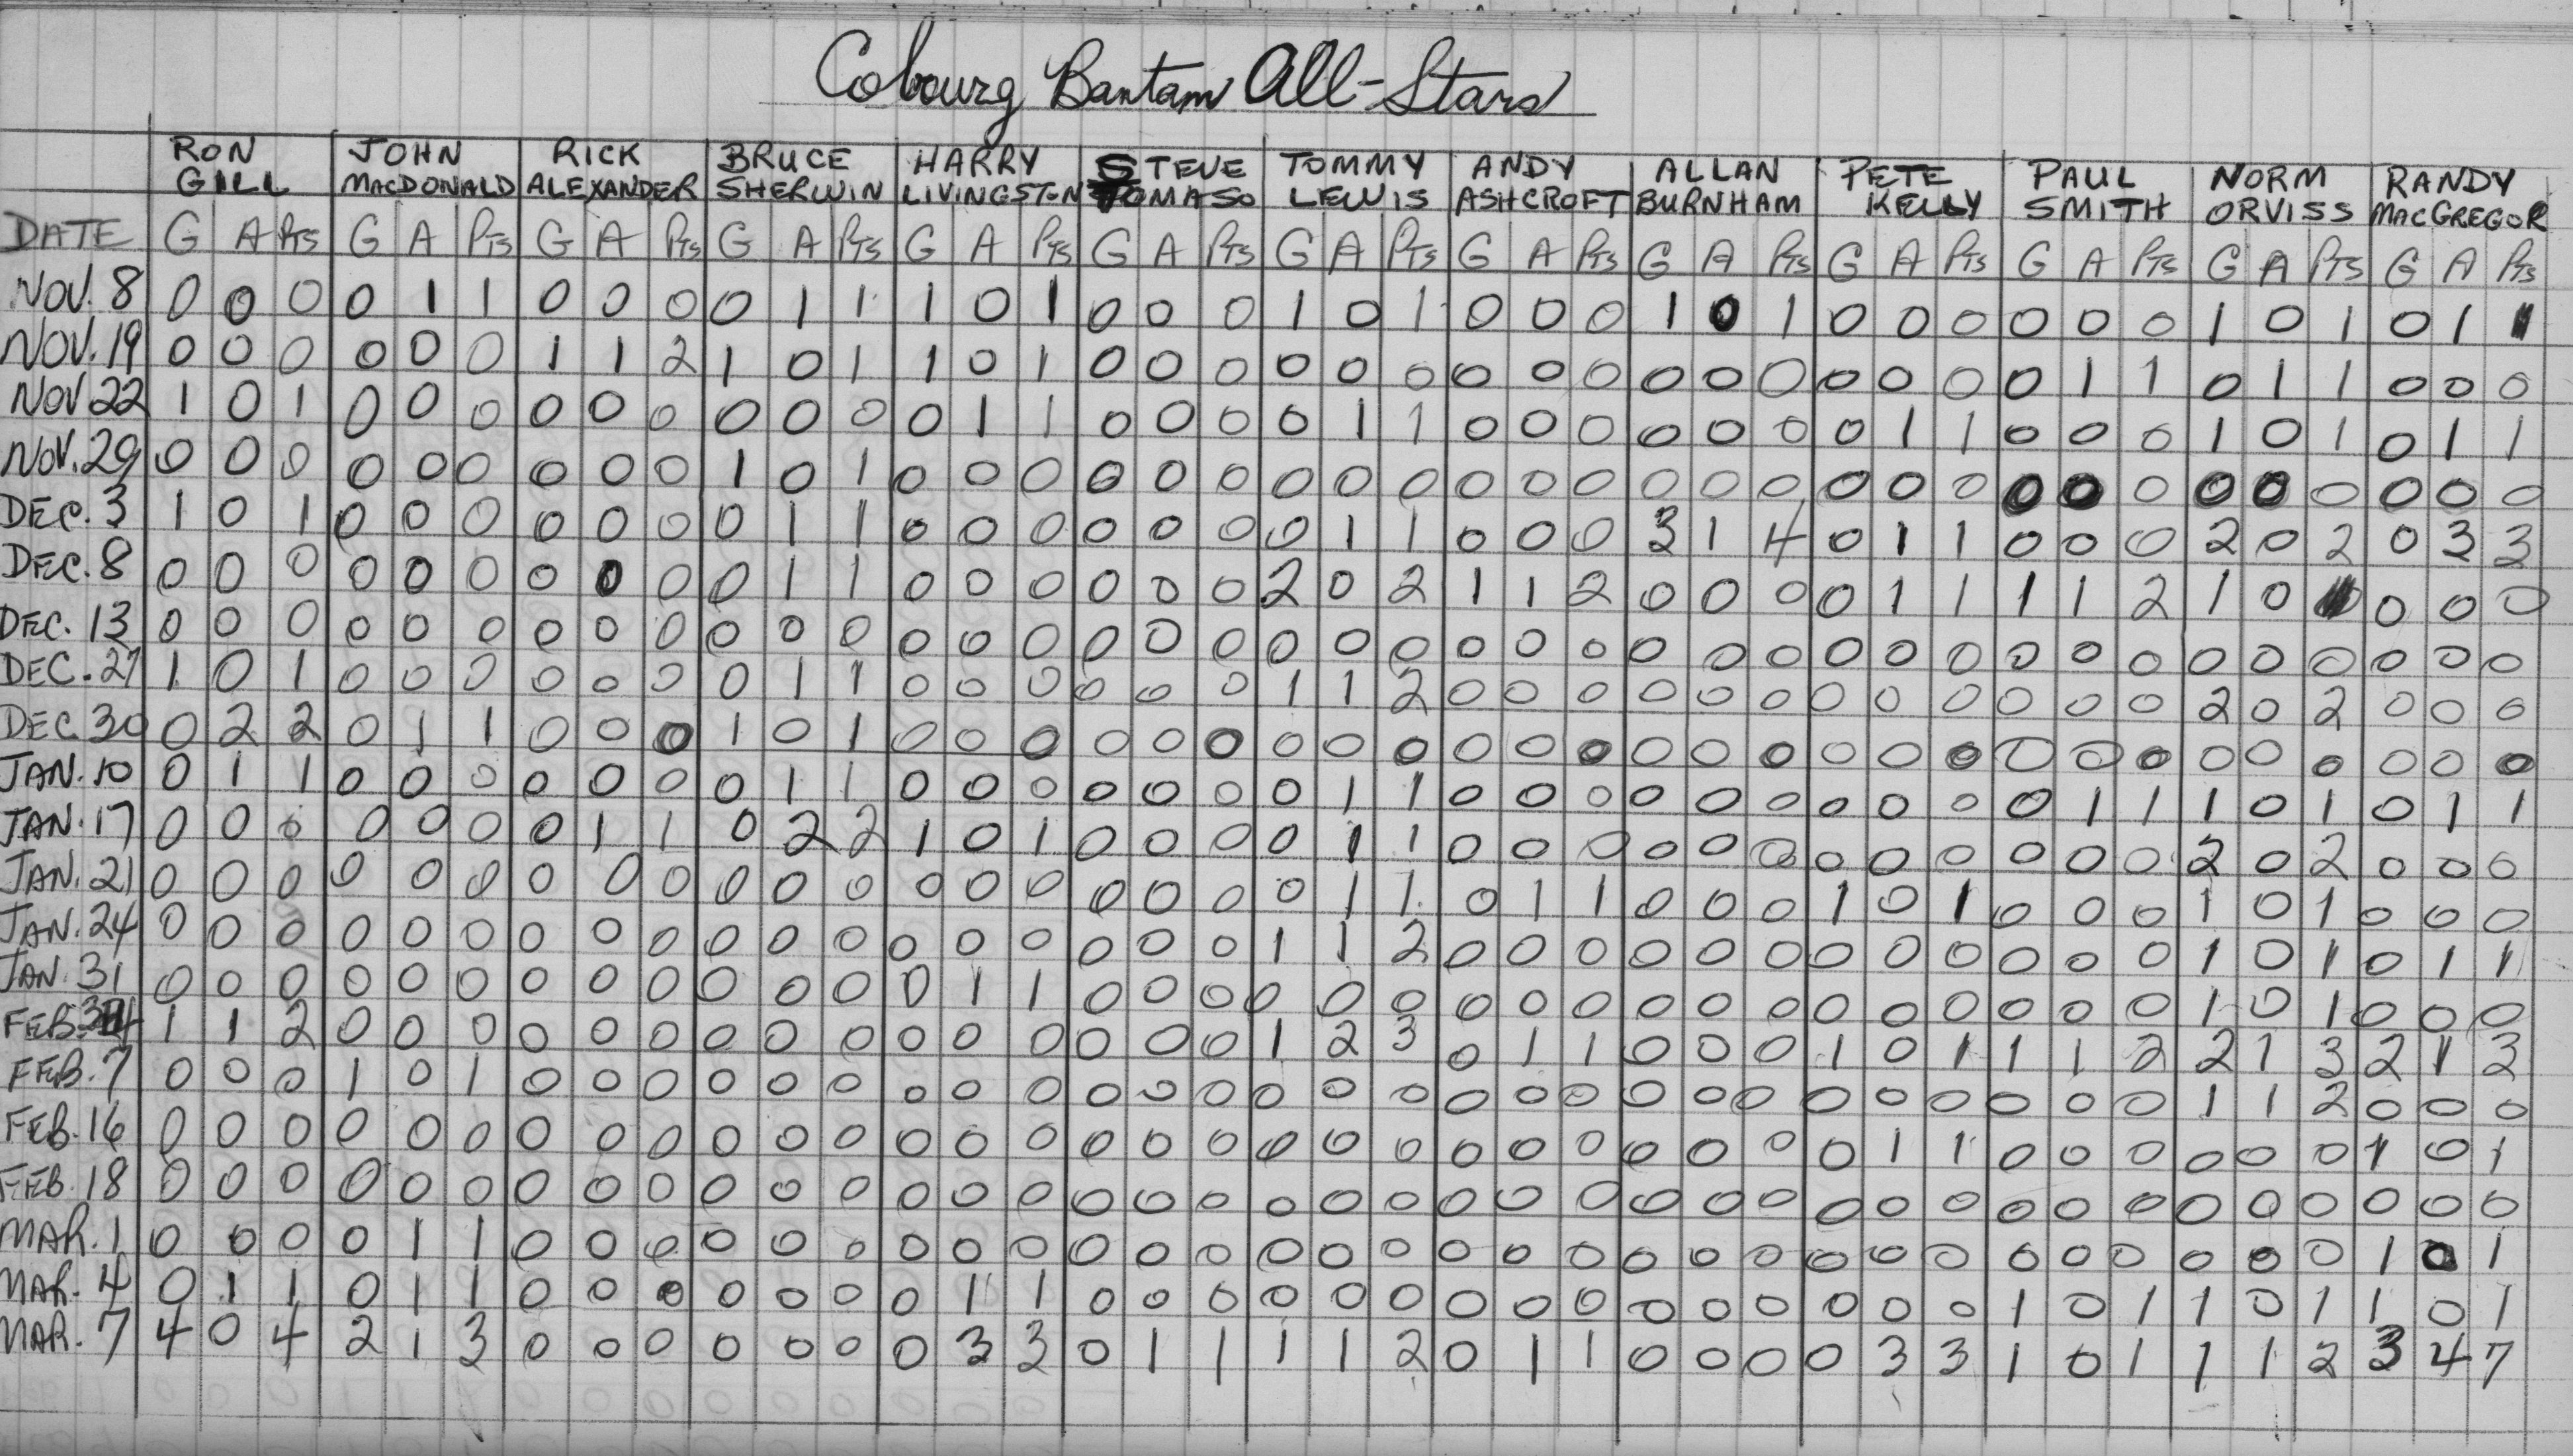 Cobourg Bantam All-Stars
RON JOHN RICK BRUCE HARRY STEVE TOMMY ANDY ALLAN PETE PAUL NORM RANDY
GILL MACDONALD ALEXANDER SHERWIN LIVINGSTON TOMASO LEWIS ASHCROFT BURNHAM KELLY SMITH ORVISS MACGREGOR
DATE G A PTS G A PTS G A PTS G A PTS G A PTS G A PTS G A PTS G A PTS G A PTS G A PTS G A PTS G A PTS G A PTS
NOV. 8 0 0 0 0 1 1 0 0 0 0 1 1 1 0 1 0 0 0 1 0 1 0 0 0 1 0 1 0 0 0 0 0 0 1 0 1 0 1 1
NOV. 19 0 0 0 0 0 0 1 1 2 1 0 1 1 0 1 0 0 0 0 0 0 0 0 0 0 0 0 0 0 0 0 1 1 0 1 1 0 0 0
NOV 22 1 0 1 0 0 0 0 0 0 0 0 0 0 1 1 0 0 0 0 1 1 0 0 0 0 0 0 0 1 1 0 0 0 1 0 1 0 1 1
NOV. 29 0 0 0 0 0 0 0 0 0 1 0 1 0 0 0 0 0 0 0 0 0 0 0 0 0 0 0 0 0 0 0 0 0 0 0 0 0 0 0
DEC. 3 1 0 1 0 0 0 0 0 0 0 1 1 0 0 0 0 0 0 0 1 1 0 0 0 3 1 4 0 1 1 0 0 0 2 0 2 0 3 3
DEC. 8 0 0 0 0 0 0 0 0 0 0 1 1 0 0 0 0 0 0 2 0 2 1 1 2 0 0 0 0 1 1 1 1 2 1 0 0 0 0
DEC. 13 0 0 0 0 0 0 0 0 0 0 0 0 0 0 0 0 0 0 0 0 0 0 0 0 0 0 0 0 0 0 0 0 0 0 0 0 0 0 0
DEC. 27 1 0 1 0 0 0 0 0 0 0 1 1 0 0 0 0 0 0 1 1 2 0 0 0 0 0 0 0 0 0 0 0 0 2 0 2 0 0 0
DEC. 30 0 2 2 0 1 1 0 0 0 1 0 1 0 0 0 0 0 0 0 0 0 0 0 0 0 0 0 0 0 0 0 0 0 0 0 0 0 0 0
JAN. 10 0 1 1 0 0 0 0 0 0 0 1 1 0 0 0 0 0 0 0 1 1 0 0 0 0 0 0 0 0 0 0 1 1 1 0 1 0 1 1
JAN. 17 0 0 0 0 0 0 0 1 1 0 2 2 1 0 1 0 0 0 0 1 1 0 0 0 0 0 0 0 0 0 0 0 0 2 0 2 0 0 0
JAN. 21 0 0 0 0 0 0 0 0 0 0 0 0 0 0 0 0 0 0 0 1 1 0 1 1 0 0 0 1 0 1 0 0 0 1 0 1 0 0 0
JAN. 24 0 0 0 0 0 0 0 0 0 0 0 0 0 0 0 0 0 0 1 1 2 0 0 0 0 0 0 0 0 0 0 0 0 1 0 1 0 1 1
JAN. 31 0 0 0 0 0 0 0 0 0 0 0 0 0 1 1 0 0 0 0 0 0 0 0 0 0 0 0 0 0 0 0 0 0 1 0 1 0 0 0
FEB. 4 1 1 2 0 0 0 0 0 0 0 0 0 0 0 0 0 0 0 1 2 3 0 1 1 0 0 0 1 0 1 1 1 2 2 1 3 2 1 3
FEB. 7 0 0 0 1 0 1 0 0 0 0 0 0 0 0 0 0 0 0 0 0 0 0 0 0 0 0 0 0 0 0 0 0 0 1 1 2 0 0 0
FEB. 16 0 0 0 0 0 0 0 0 0 0 0 0 0 0 0 0 0 0 0 0 0 0 0 0 0 0 0 0 1 1 0 0 0 0 0 0 1 0 1
FEB. 18 0 0 0 0 0 0 0 0 0 0 0 0 0 0 0 0 0 0 0 0 0 0 0 0 0 0 0 0 0 0 0 0 0 0 0 0 0 0 0
MAR. 1 0 0 0 0 1 1 0 0 0 0 0 0 0 0 0 0 0 0 0 0 0 0 0 0 0 0 0 0 0 0 0 0 0 0 0 0 1 0 1
MAR. 4 0 1 1 0 1 1 0 0 0 0 0 0 0 1 1 0 0 0 0 0 0 0 0 0 0 0 0 0 0 0 1 0 1 1 0 1 1 0 1
MAR. 7 4 0 4 2 1 3 0 0 0 0 0 0 0 3 3 0 1 1 1 1 2 0 1 1 0 0 0 0 3 3 1 0 1 1 1 2 3 4 7